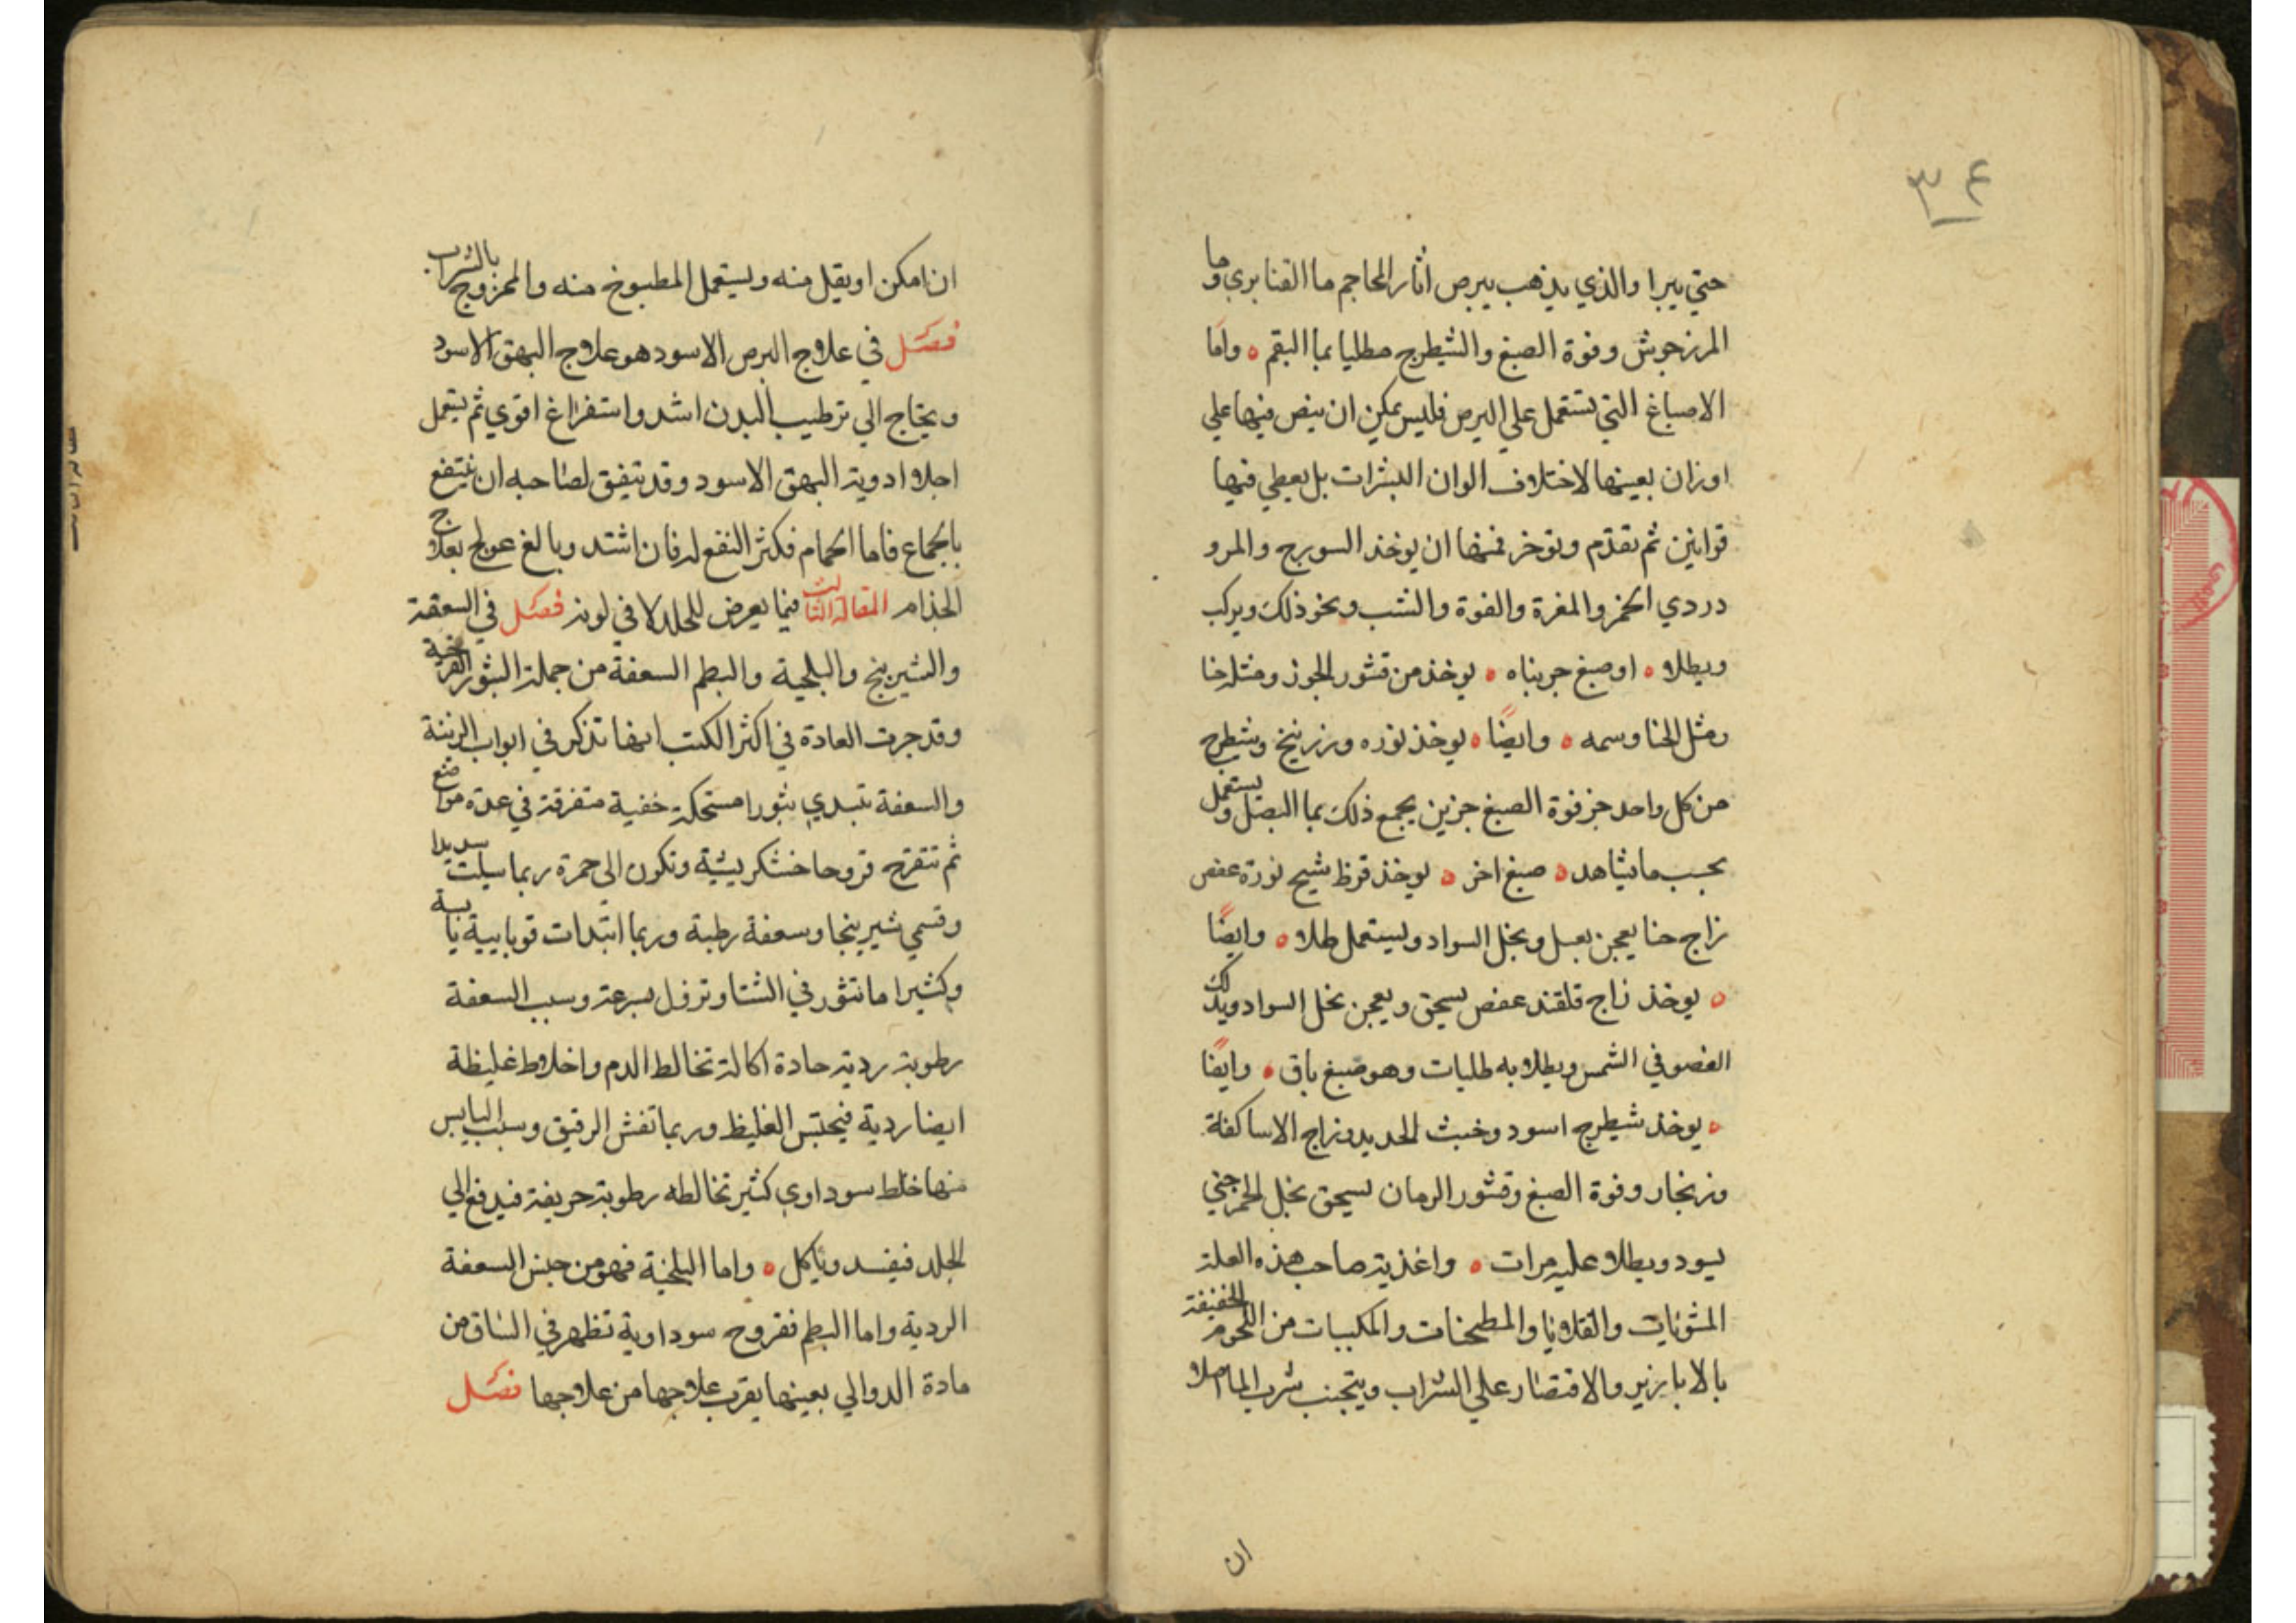 ٣٤
حتي يبرا والذي يذهب ببرص اثار المحاجم ما القنابري وما
المرزجوش وفوة الصبغ والشيطرج مطليا بما البقم ٥ واما
الاصباغ التي تستعمل علي البرص فليس يمكن ان ينص فيها علي
اوزان بعينها لاختلاف الوان البشرات بل يعطي فيها
قوانين ثم تقدم وتوخر فمنها ان يوخذ السورج والمرو
دردي الخمر والمغرة والفوة والشب ونحو ذلك ويركب
ويطلا ٥ او صبغ جربناه ٥ يوخذ من قشور الجوز ومثله حنا
ومثل الحنا وسمه ٥ وايضا ٥ يوخذ نوره وزرنيخ وشطرج
من كل واحد جز فوة الصبغ جزين يجمع ذلك بما البصل ويستعمل
بحسب ما يشاهد ٥ صبغ اخر ٥ يوخذ قرظ شيح نورة عفص
زاج حنا يعجن بعسل وبخل السواد ويستعمل طلا ٥ وايضا
٥ يوخذ زاج قلقند عفص يسحق ويعجن بخل السواد ويدلك
العضو في الشمس ويطلا به طليات وهو صبغ باق ٥ وايضا
٥ يوخذ شيطرج اسود وخبث الحديد وزاج الاساكفة
وزنجار وفوة الصبغ وقشور الرمان يسحق بخل الخمر حتي
يسود ويطلا عليه مرات ٥ واغذية صاحب هذه العلة
المشويات والقلايا والمطجنات والمكببات من اللحوم الخفيفة
بالابازير والاقتصار علي الشراب ويتجنب شرب الما اصلا
ان
ان امكن او يقل منه ويستعمل المطبوخ منه والممزوج بالشراب
فصل في علاج البرص الاسود هو علاج البهق الاسود
ويحتاج الي ترطيب البدن اشد واستفراغ اقوي ثم يستعمل
اجلا ادوية البهق الاسود وقد يتفق لصاحبه ان ينتفع
بالجماع فاما الحمام فكثير النفع له فان اشتد وبالغ عولج بعلاج
الجذام المقالة الثالث فيما يعرض للجلد لا في لونه فصل في السعفة
والشيرينج والبلخية والبطم السعفة من جملة البثور القرحية
وقد جرت العادة في اكثر الكتب انها تذكر في ابواب الزينة
والسعفة تبتدي بثورا مستحكة خفية متفرقة في عدة مواضع
ثم تتقرح قروحا خشكريشية وتكون الي حمرة ربما سيلت صديدا
وتسمي شيرينجا وسعفة رطبة وربما ابتدات قوبايية يابسة
وكثيرا ما تثور في الشتا وتزول بسرعة وسبب السعفة
رطوبة ردية حادة اكالة تخالط الدم واخلاط غليظة
ايضا ردية فيحتبس الغليظ وربما تفش الرقيق وسبب اليابس
منها خلط سوداوي كثير تخالطه رطوبة حريفة فيدفع الي
الجلد فيفسد وياكل ٥ واما البلخية فهو من جنس السعفة
الردية واما البطم فقروح سوداوية تظهر في الساق من
مادة الدوالي بعينها يقرب علاجها من علاجها فصل